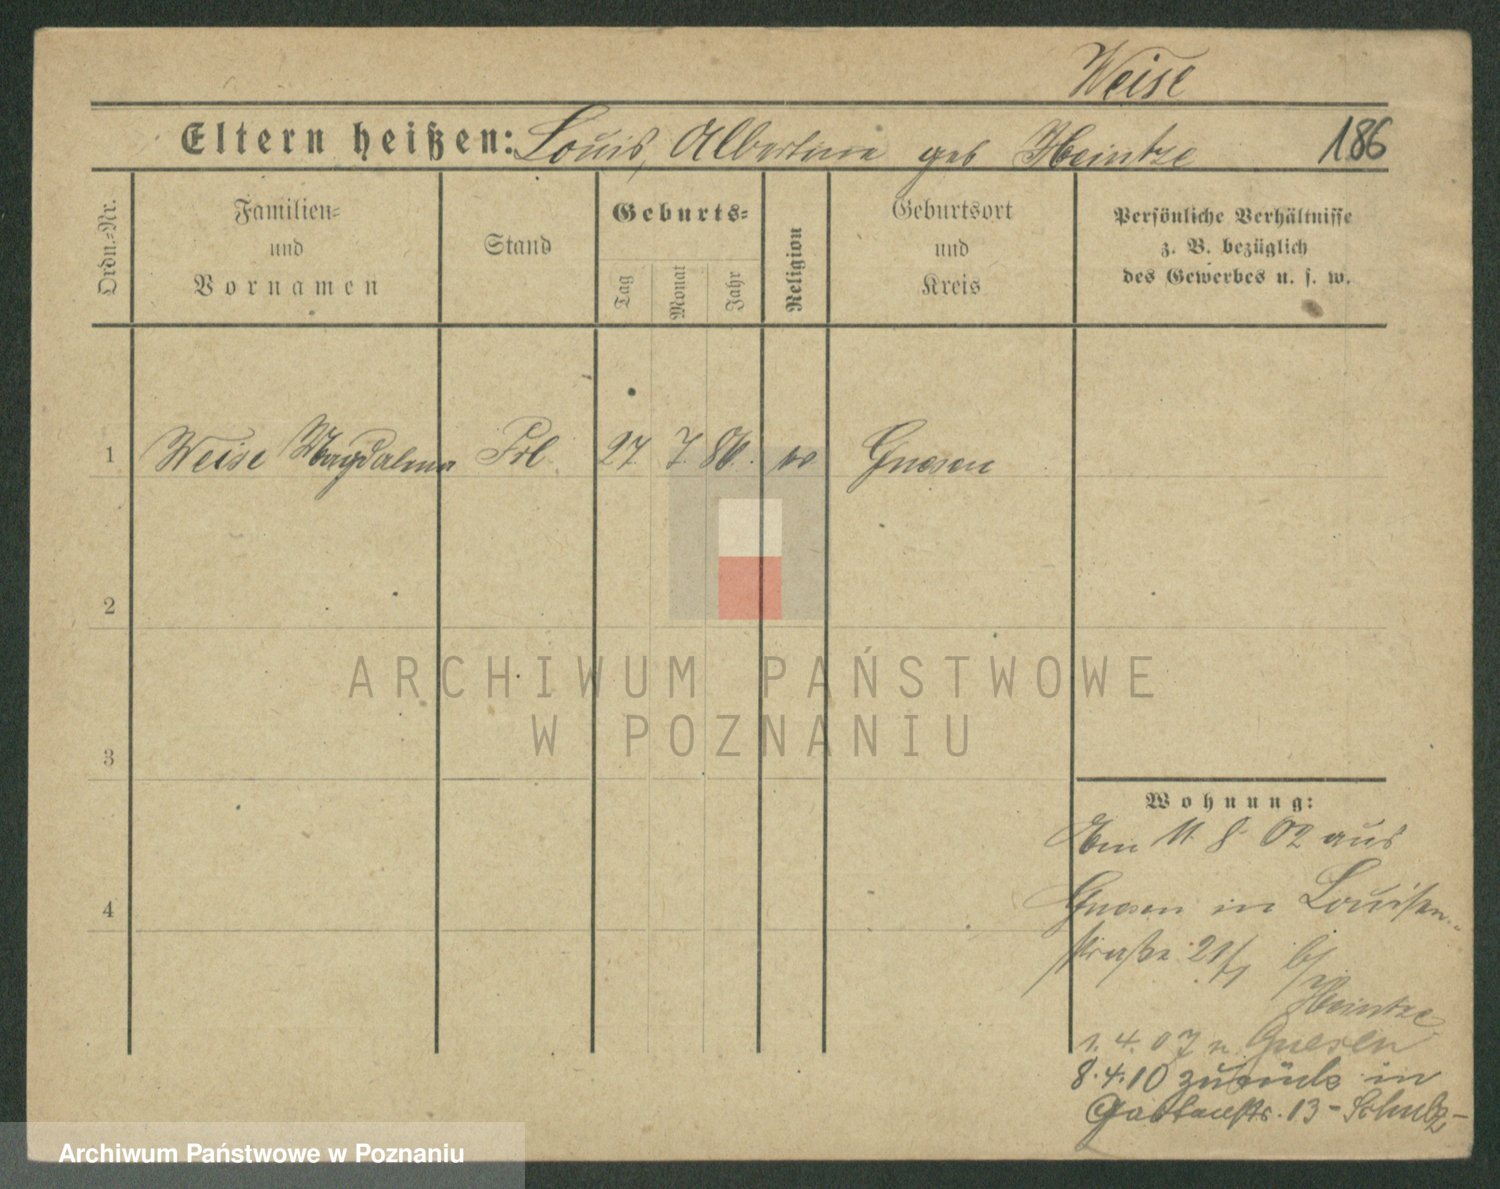 Weise
Eltern heißen: Louis, Albertine geb Heintze 186
Ordn.=Nr.
Familien=
und
Vornamen
Stand
Geburts=
Tag
Monat
Jahr
Religion
Geburtsort
und
Kreis
Persönliche Verhältnisse
z. B. bezüglich
des Gewerbes u. s. w.
1 Weise Magdalena Frl 27. 7. 86. Gnesen
2
3
4
ARCHIWUM PAŃSTWOWE
W POZNANIU
Wohnung:
Am 11. 8. 02 aus
Gnesen in Louisen-
straße 21/1 b/
Heintze
1. 4. 07 n Gnesen
8. 4. 10 zurück in
13 - Schulz -
Archiwum Państwowe w Poznaniu